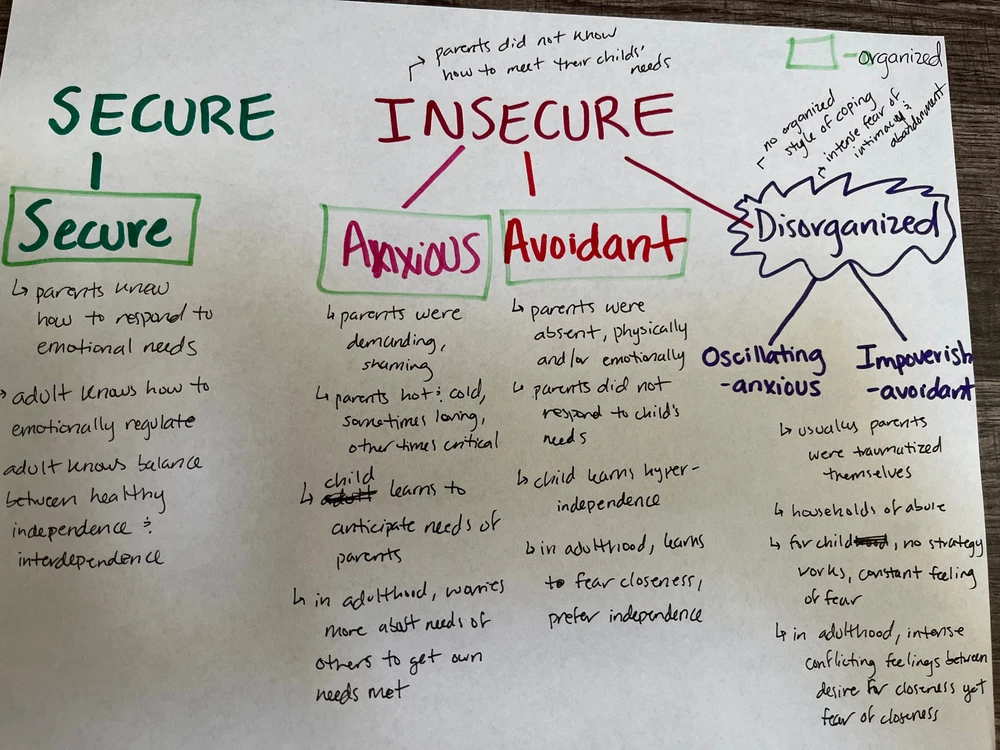 SECURE
Secure
↳ parents knew
how to respond to
emotional needs
adult knows how to
emotionally regulate
adult knows balance
between healthy
independence &
interdependence
parents did not know
how to meet their childs'
needs
INSECURE
Anxious
↳ parents were
demanding,
shaming
↳ parents hot & cold,
sometimes loving,
other times critical
child
↳ adult learns to
anticipate needs of
parents
↳ in adulthood, worries
more about needs of
others to get own
needs met
Avoidant
↳ parents were
absent, physically
and/or emotionally
↳ parents did not
respond to child's
needs
↳ child learns hyper-
independence
↳ in adulthood, learns
to fear closeness,
prefer independence
- organized
no organized
style of coping
intense fear of
intimacy &
abandonment
Disorganized
Oscillating
-anxious
Impoverish
-avoidant
↳ usually parents
were traumatized
themselves
↳ households of abuse
↳ for child, no strategy
works, constant feeling
of fear
↳ in adulthood, intense
conflicting feelings between
desire for closeness yet
fear of closeness